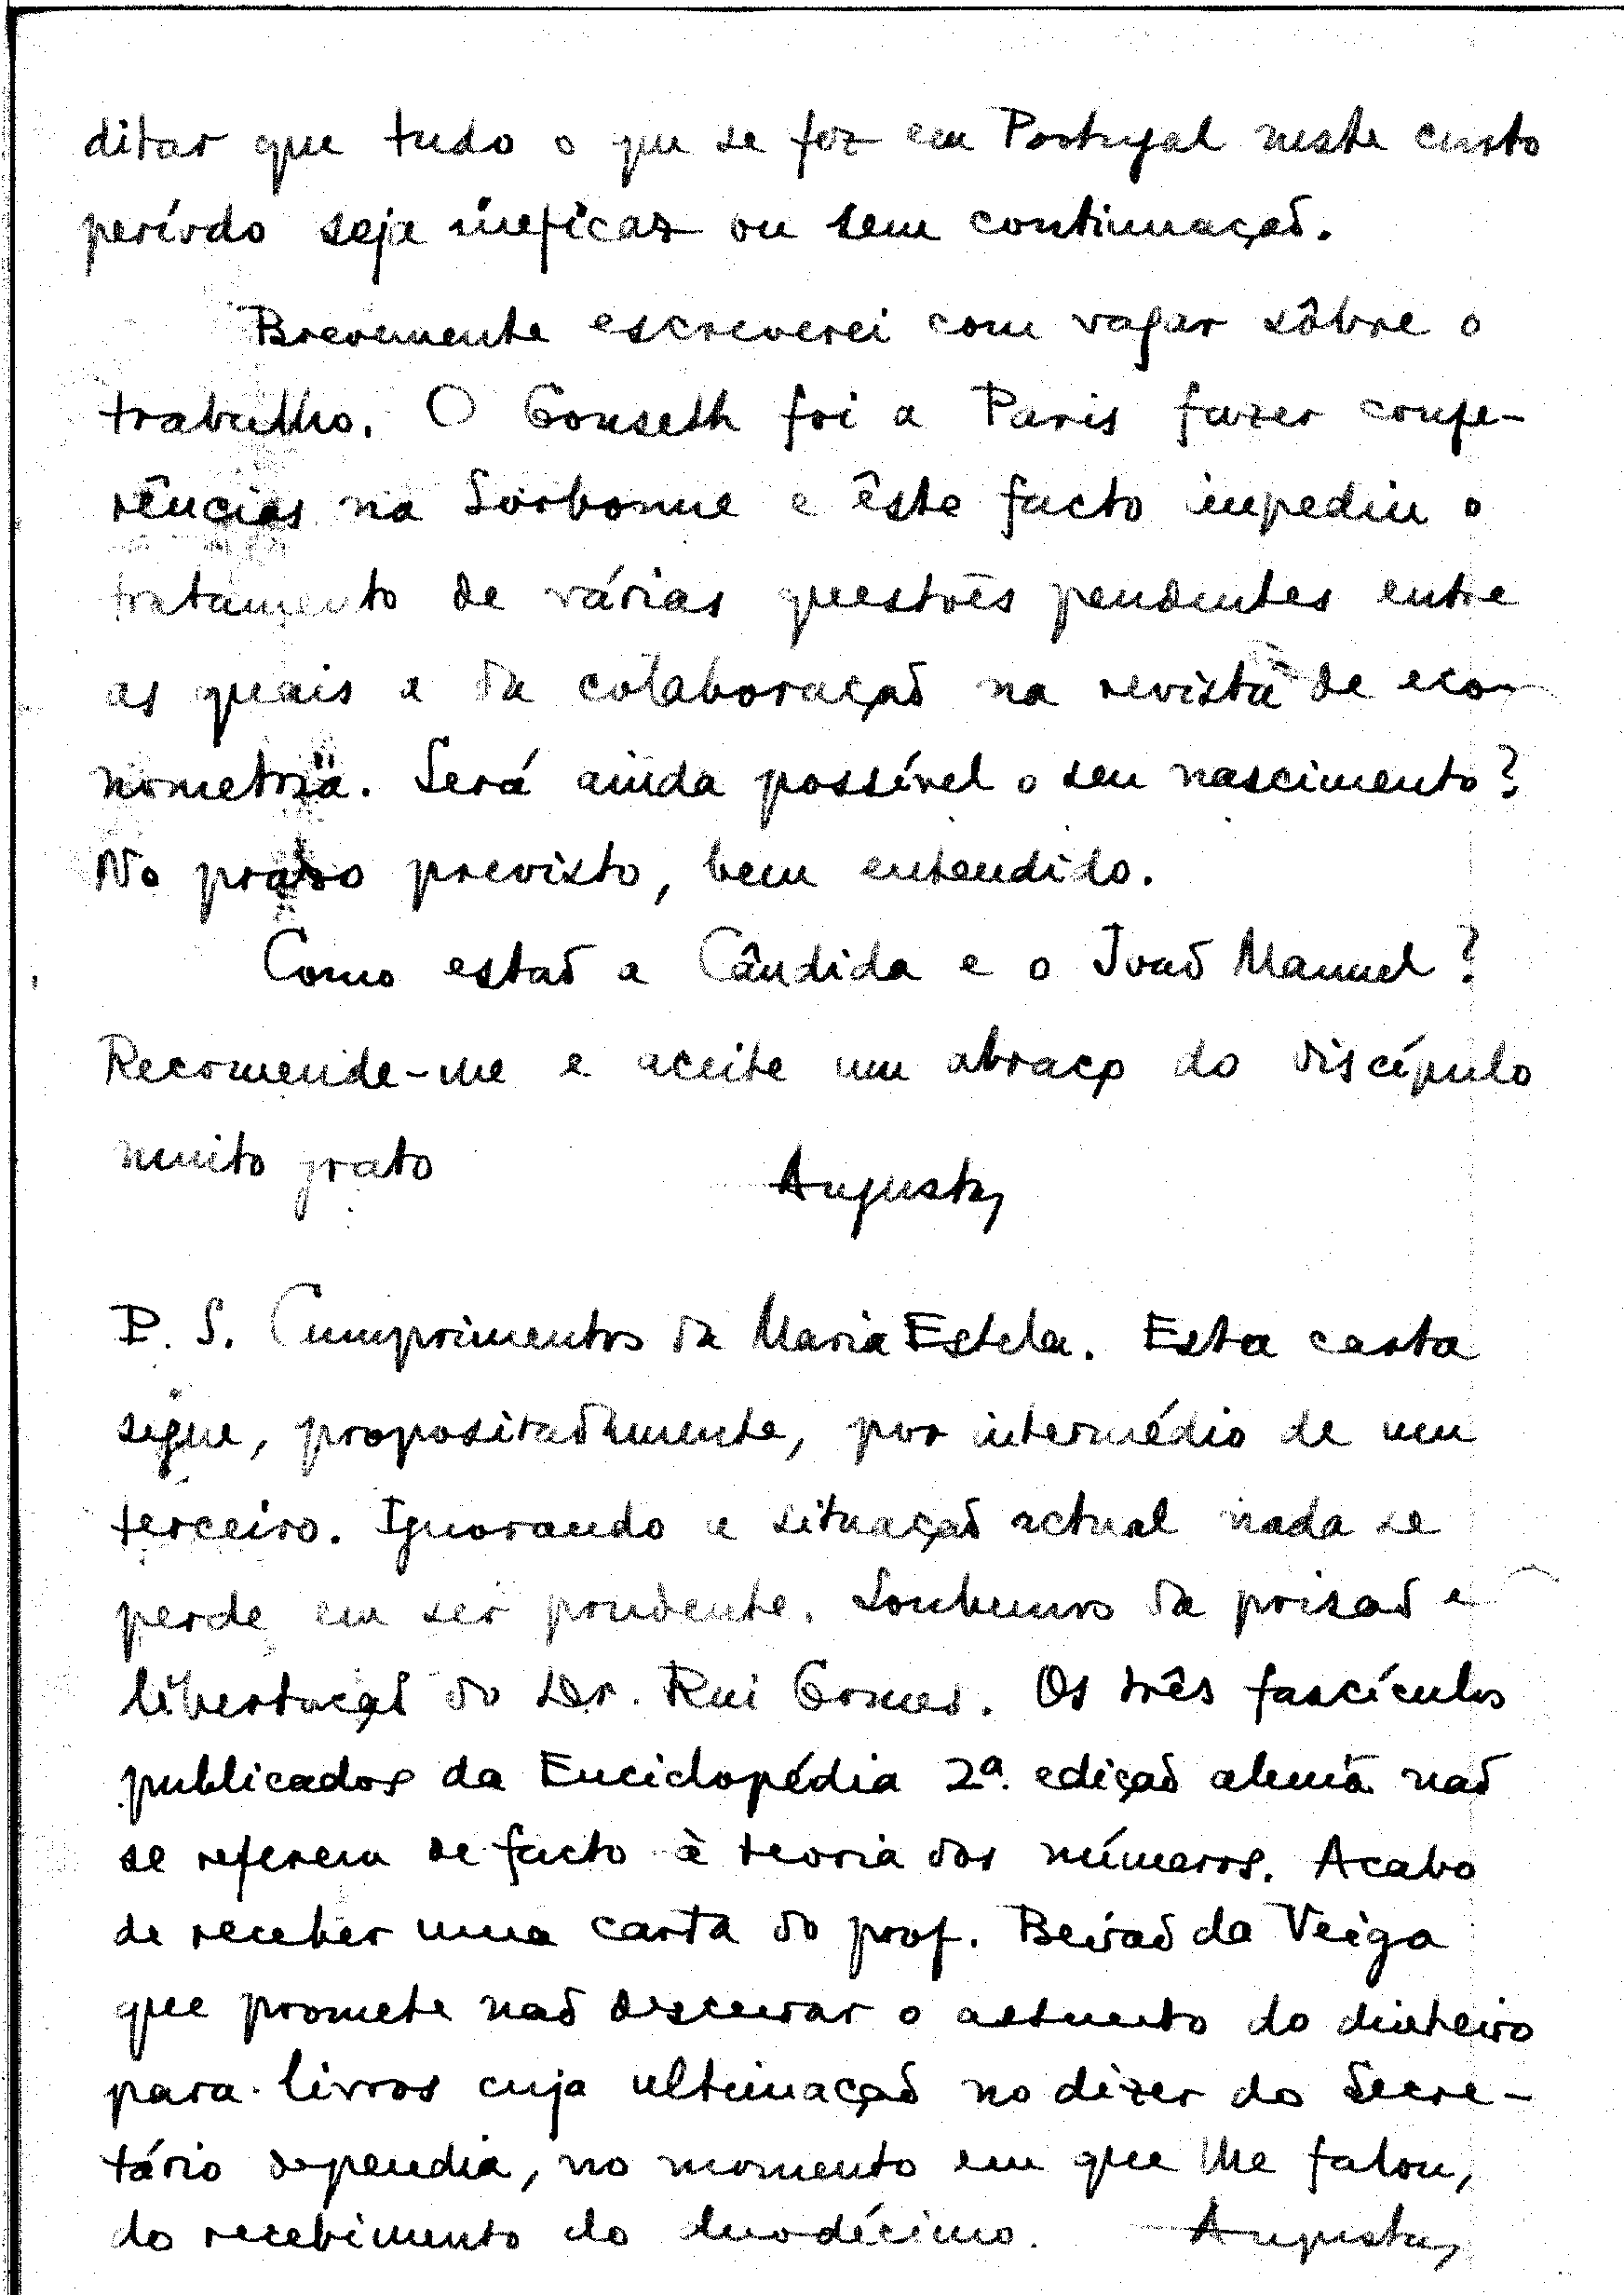 ditar que tudo o que se fez em Portugal neste curto
período seja ineficaz ou sem continuação.
Brevemente escreverei com vagar sôbre o
trabalho. O Gonseth foi a Paris fazer confe-
rências na Sorbonne e êste facto impediu o
tratamento de várias questões pendentes entre
as quais a da colaboração na revista de eco-
nometria. Será ainda possível o seu nascimento?
No prazo previsto, bem entendido.
Como estão a Cândida e o João Manuel?
Recomende-me e aceite um abraço do discípulo
muito grato
Augusto
P. S. Cumprimentos da Maria Estela. Esta carta
segue, propositadamente, por intermédio de um
terceiro. Ignorando a situação actual nada se
perde em ser prudente. Soubemos da prisão e
libertação do Dr. Rui Gomes. Os três fascículos
publicados da Enciclopédia 2ª. edição alemã não
se referem de facto à teoria dos números. Acabo
de receber uma carta do prof. Beirão da Veiga
que promete não descurar o assunto do dinheiro
para livros cuja ultimação no dizer do Secre-
tário dependia, no momento em que lhe falou,
do recebimento do duodécimo. Augusto